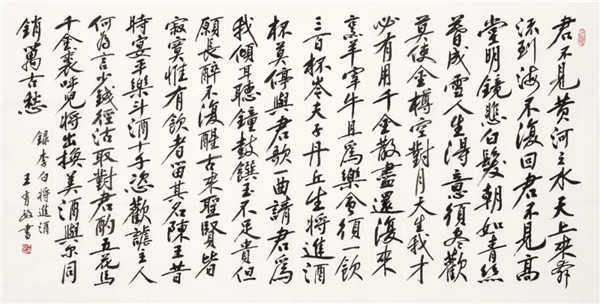 君不見黄河之水天上来奔
流到海不復回君不見高
堂明鏡悲白髮朝如青絲
暮成雪人生得意須尽歡
莫使金樽空對月天生我才
必有用千金散盡還復来
烹羊宰牛且為樂會須一飲
三百杯岑夫子丹丘生将進酒
杯莫停與君歌一曲請君為
我傾耳聽鐘鼓饌玉不足貴但
願長醉不復醒古来聖賢皆
寂寞惟有飲者留其名陳王昔
時宴平樂斗酒十千恣歡謔主人
何為言少錢徑沽取對君酌五花馬
千金裘呼児将出換美酒與尔同
銷萬古愁
録李白将進酒
王
書